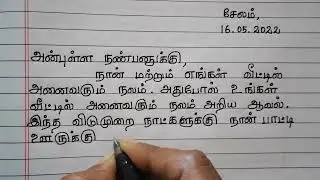 சேலம்,
16.05.2022
அன்புள்ள நண்பனுக்கு,
நான் மற்றும் எங்கள் வீட்டில்
அனைவரும் நலம். அதுபோல் உங்கள்
வீட்டில் அனைவரும் நலம் அறிய ஆவல்.
இந்த விடுமுறை நாட்களுக்கு நான் பாட்டி
ஊருக்கு